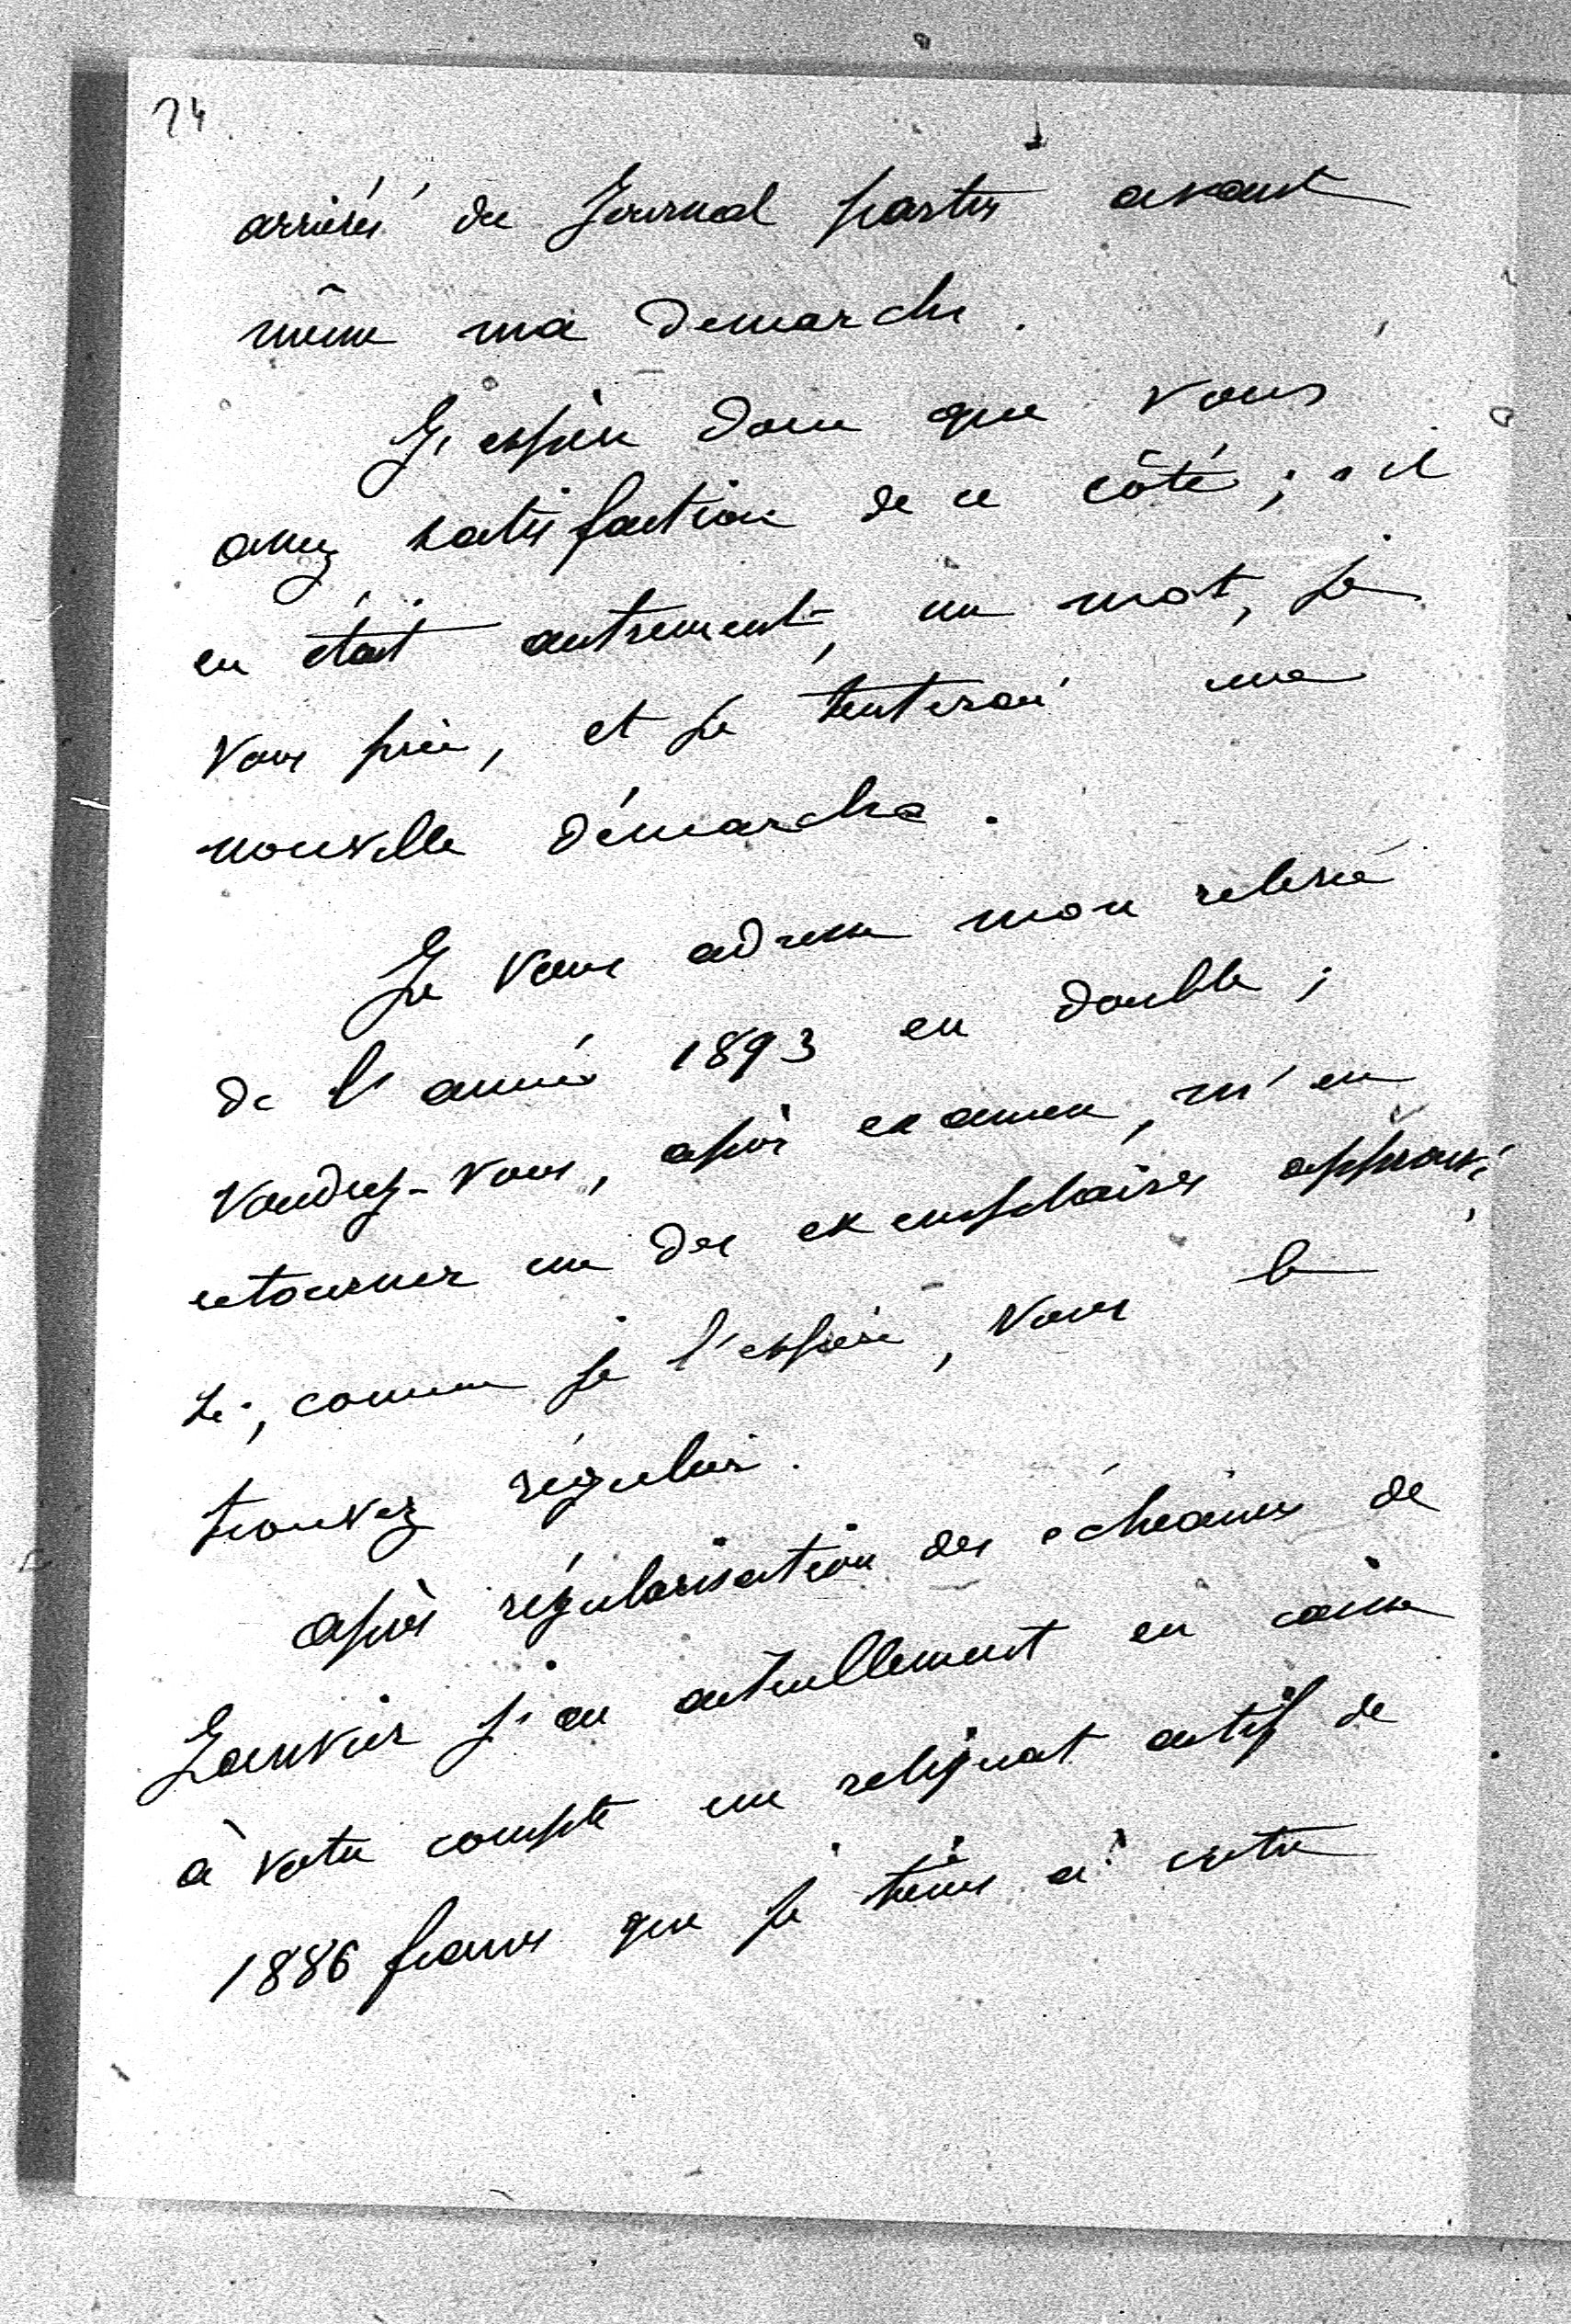 74
arriérés du Journal partis avant
même ma demarche.
J'espère donc que vous
avez satisfaction de ce côté ; s'il
en était autrement, un mot, je
vous prie, et je tenterai une
nouvelle démarche.
Je vous adresse mon relevé
de l'année 1893 en double ;
voudrez-vous, après examen, m'en
retourner un des exemplaires approuvé,
si, comme je l'espère, vous le
trouvez régulier.
après régularisation des échéances de
Janvier j'ai actuellement en caisse
à votre compte un reliquat actif de
1886 francs que je tiens à votre